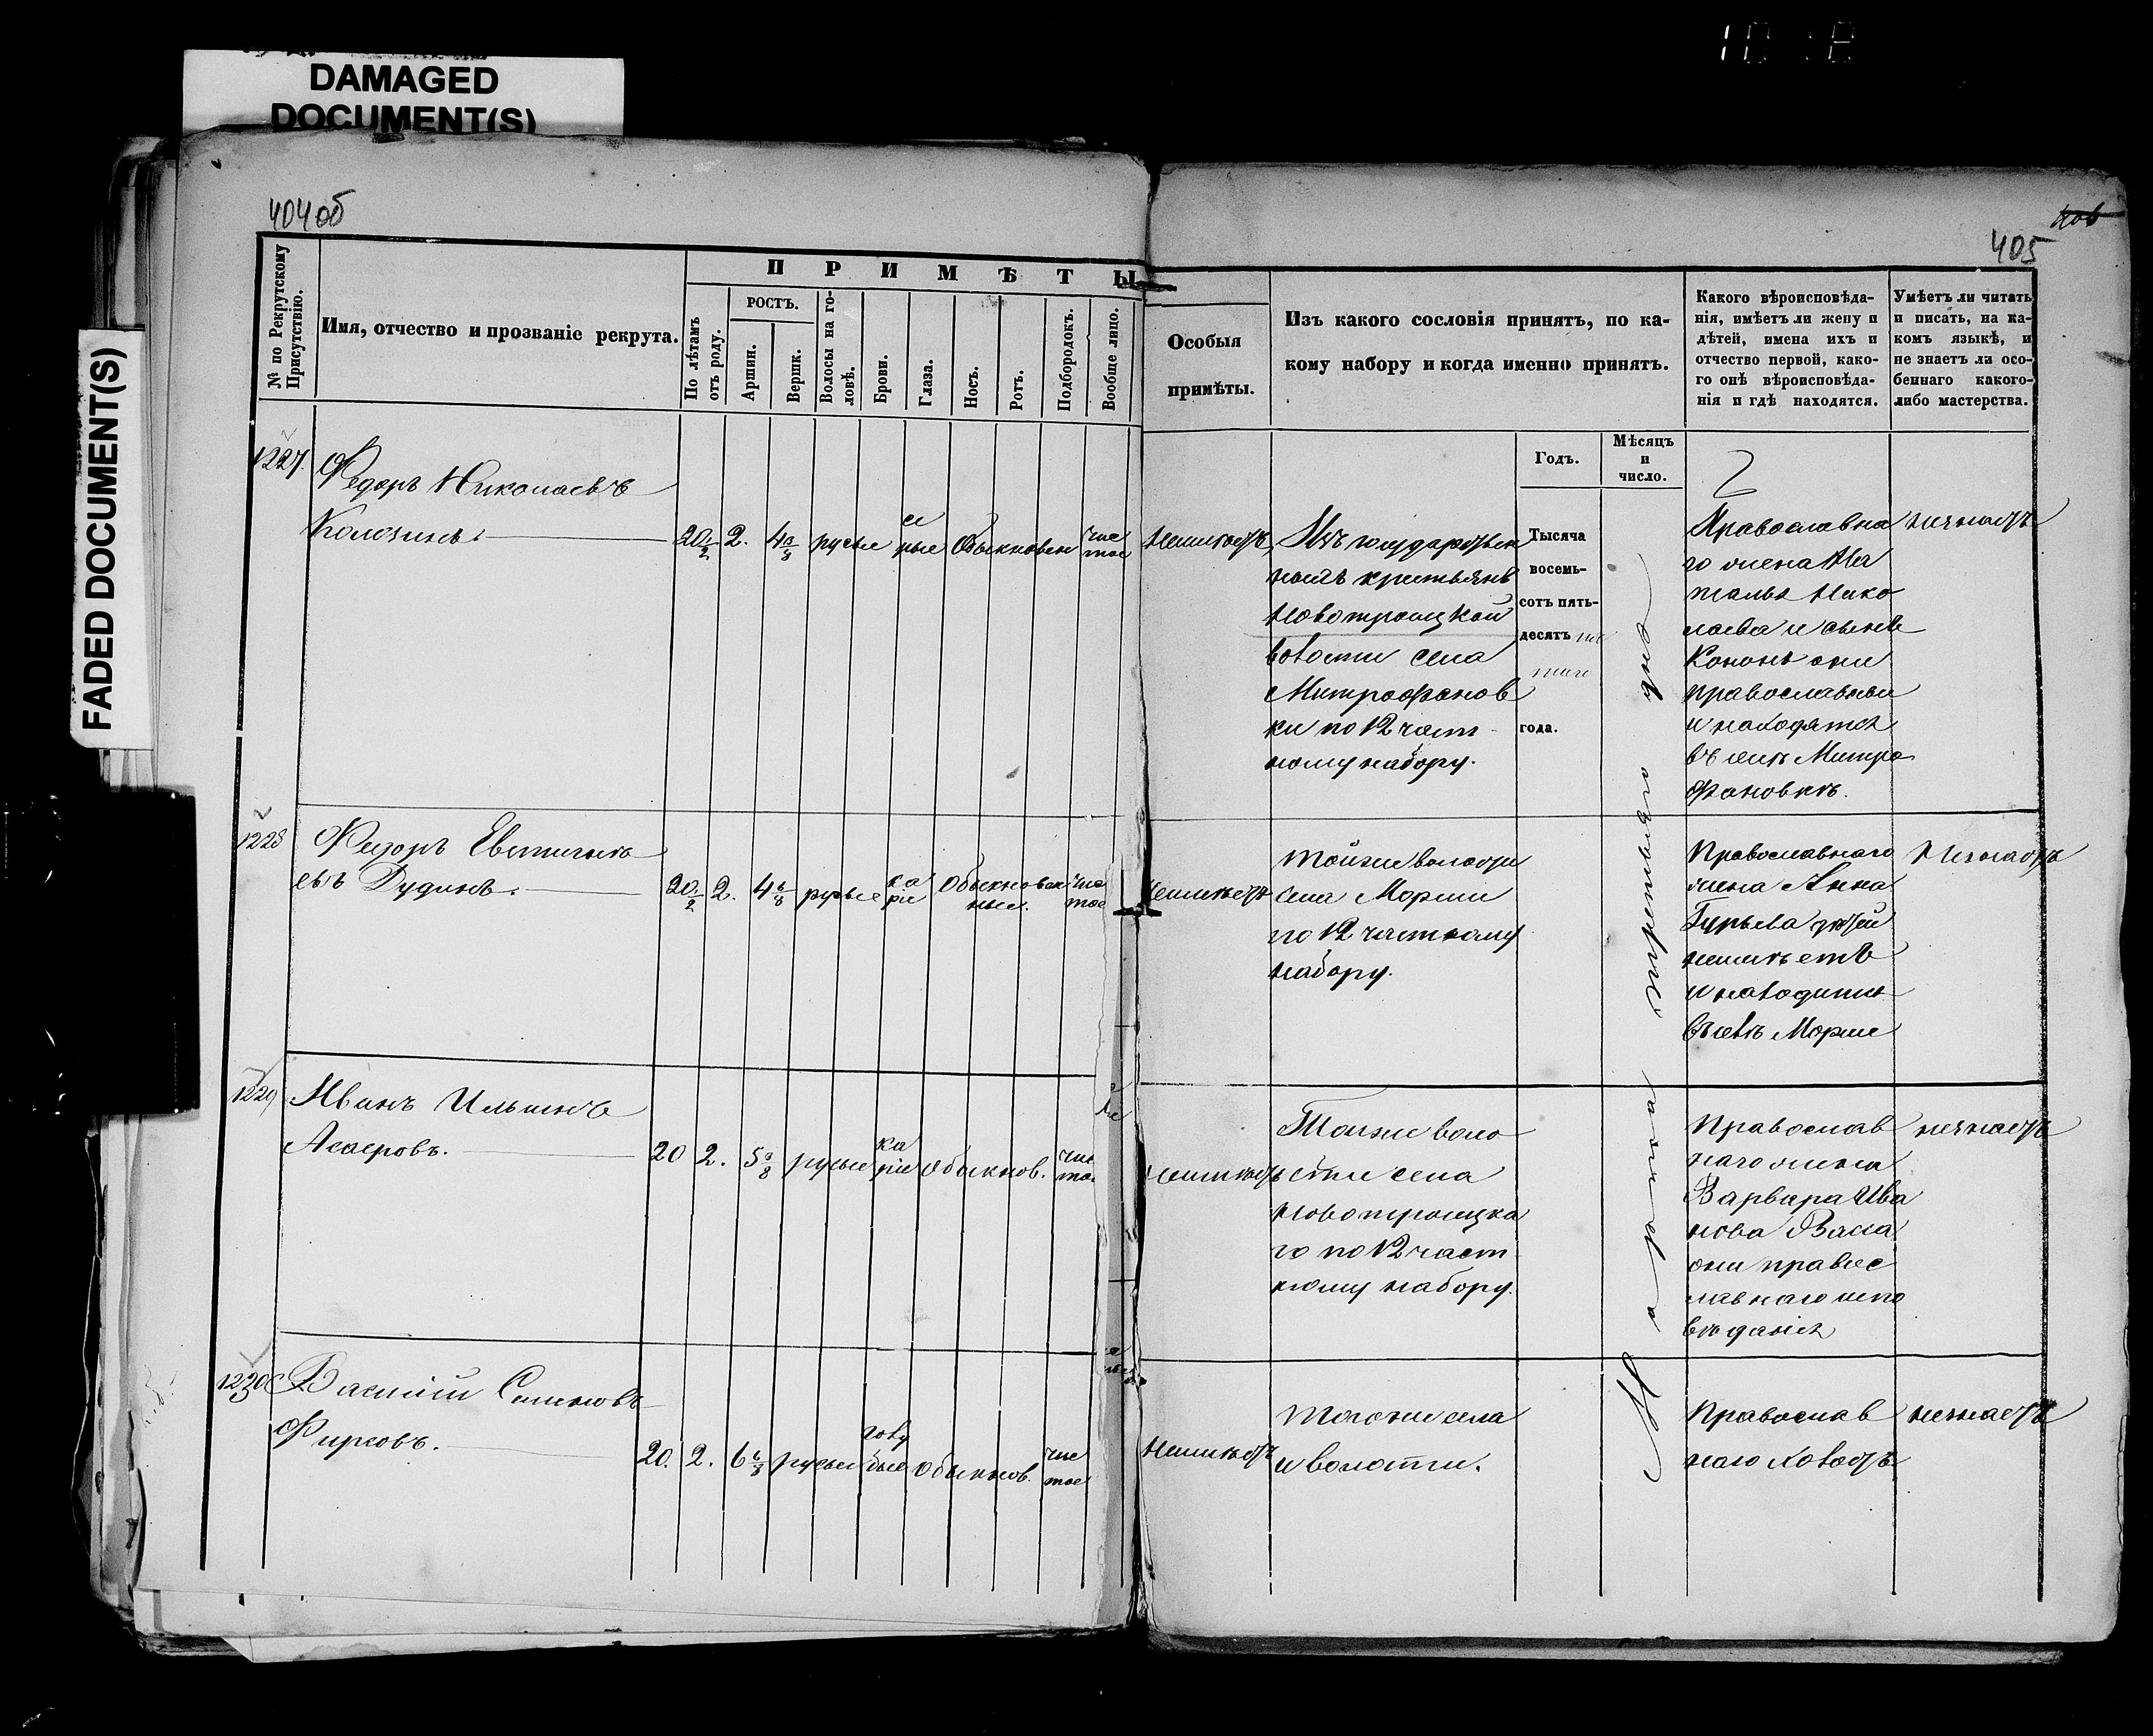 DAMAGED
DOCUMENT(S)
FADED DOCUMENT(S)
404об
405
№ по Рекрутскому Присутствію.
Имя, отчество и прозваніе рекрута.
ПРИМѢТЫ
По лѣтамъ отъ роду.
РОСТЪ.
Аршин.
Вершк.
Волосы на головѣ.
Брови.
Глаза.
Носъ.
Ротъ.
Подбородокъ.
Вообще лицо.
Особыя
примѣты.
Изъ какого сословія принятъ, по ка-
кому набору и когда именно принятъ.
Годъ.
Мѣсяцъ
и
число.
Какого вѣроисповѣда-
нія, имѣетъ ли жену и
дѣтей, имена ихъ и
отчество первой, како-
го онѣ вѣроисповѣда-
нія и гдѣ находятся.
Умѣетъ ли читать
и писать, на ка-
комъ языкѣ, и
не знаетъ ли осо-
беннаго какого-
либо мастерства.
1227.
Федоръ Николаевъ
20 1/2 2. 4 русые се
рые Обыкновен чис
тое
неимѣетъ
Изъ государствен
ныхъ крестьянъ
Новотроицкой
волости села
Митрофанов
ки по 12 част
ному набору.
Тысяча
восемь-
сотъ пять-
десятъ пя
таго
года.
Марта третьяго дня
Православна
го жена На
талья Нико
лаева и сынъ
Кононъ они
православные
и находятся
въ селѣ Митро
фановкѣ.
незнаетъ
1228
Федоръ Евтигнѣ
евъ Дудинъ.
20 1/2 2. 4 6/8 русые ка
ріе Обыкновен
ные. чис
тое
неимѣетъ
тойже волости
села Морши
по 12 частному
набору.
Православнаго
жена Анна
Гурьева дѣтей
неимѣетъ
и находится
въ селѣ Морше
Незнаетъ
1229
Иванъ Ильинъ
Агаеровъ.
20 2. 5 русые ка
ріе обыкнов. чис
тое
неимѣетъ
Тойже воло
сти села
Новотроицка
го по 12 част
ному набору.
Православ
наго жена
Варвара Ива
нова
они правос
лавнаго испо
вѣданія
незнаетъ
1230
Василій Семеновъ
Фирсовъ.
20. 2. 6 6/8 русые голу
бые обыкнов. чис
тое
неимѣетъ
тогоже села
и волости.
Православ
наго холостъ
незнаетъ